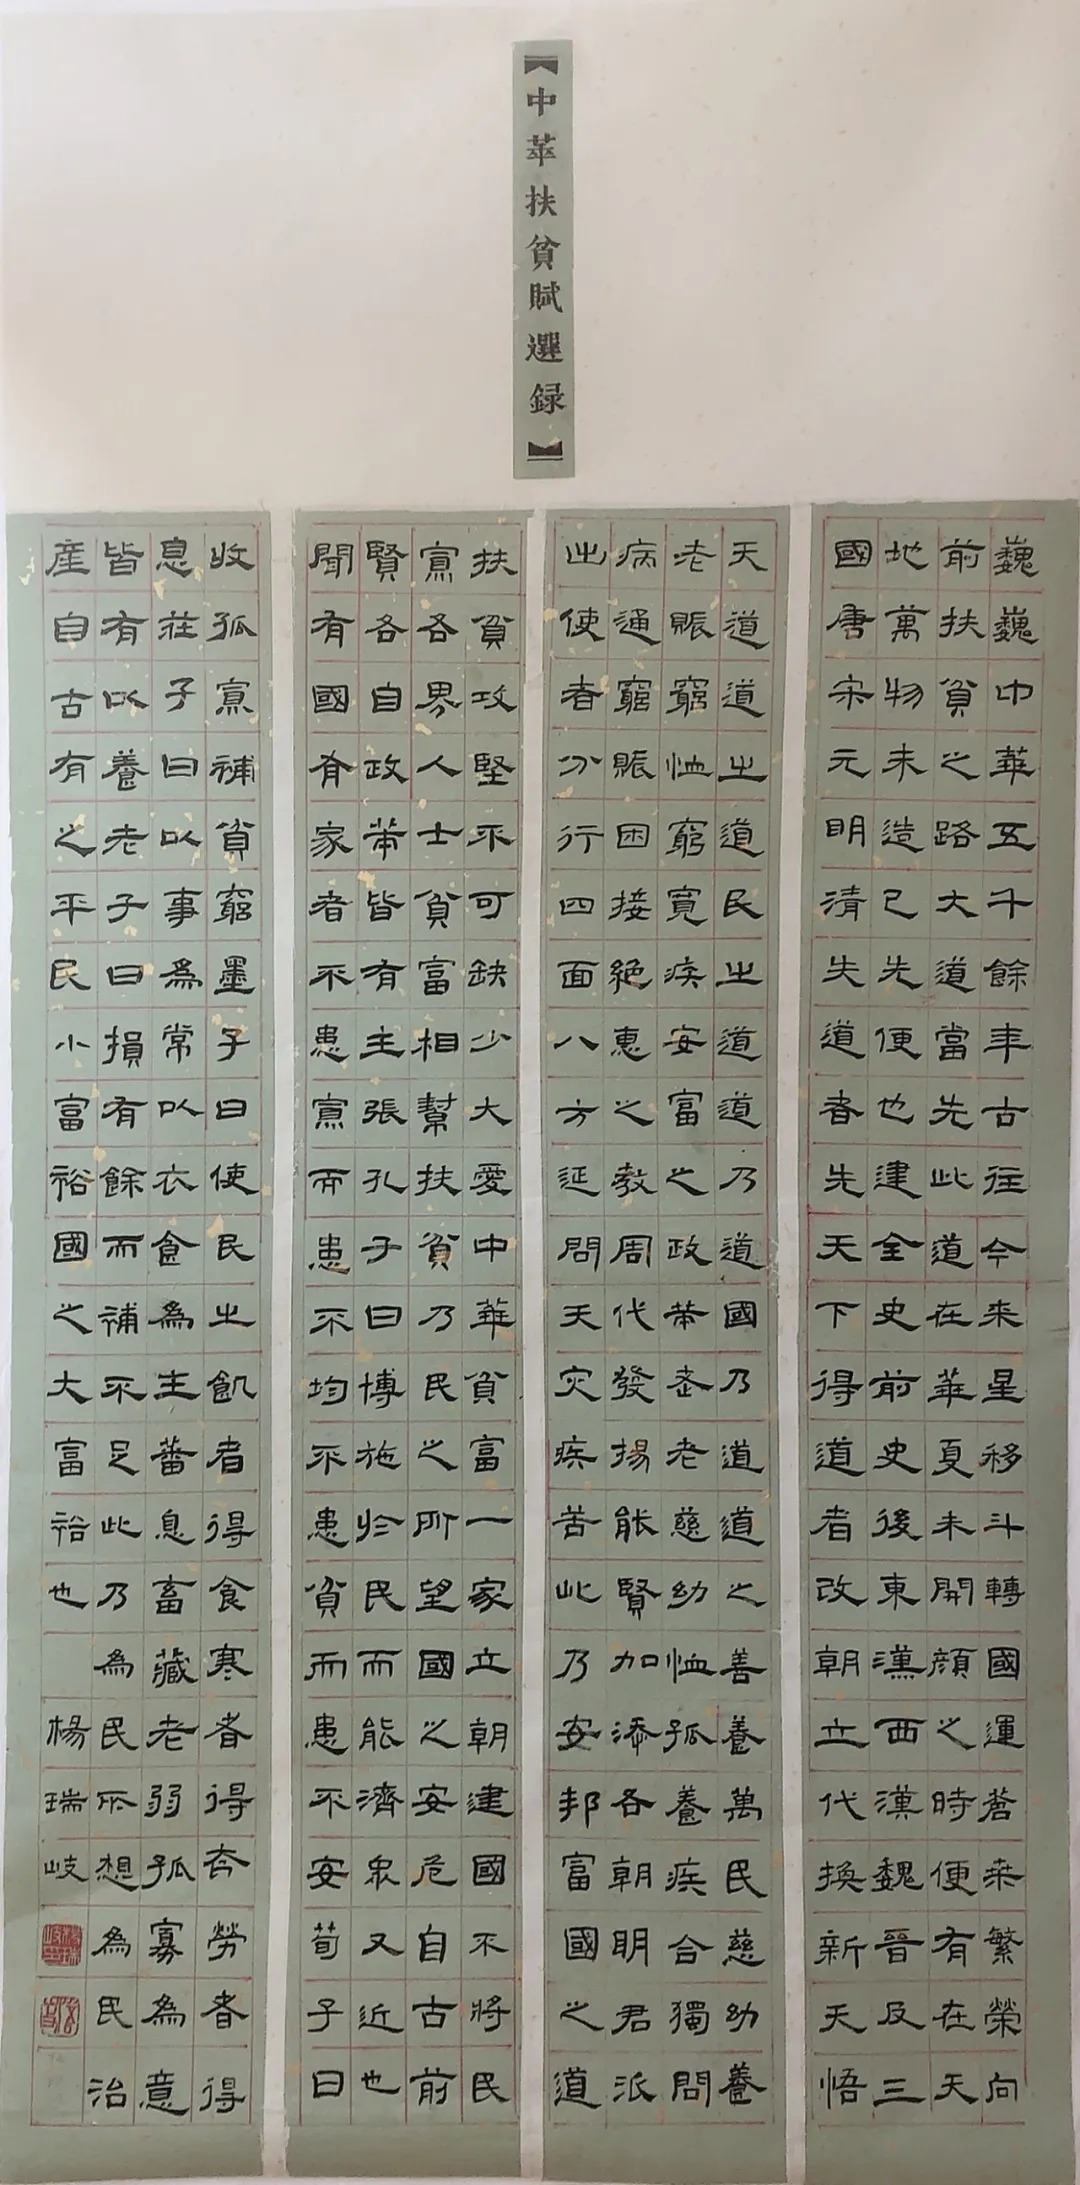 【中華扶貧賦選録】
巍巍中華五千餘年古往今来星移斗轉國運蒼桒繁榮向
前扶貧之路大道當先此道在華夏未開顔之時便有在天
地萬物未造已先便也建全史前史後東漢西漢魏晉及三
國唐宋元明清失道者先天下得道者改朝立代換新天悟
天道道之道民之道道乃道國乃道道之善養萬民慈幼養
老賑窮恤窮寬疾安富之政苐老慈幼恤孤養疾合獨問
病通窮賑困接絕惠之教周代發揚能賢加添各朝明君派
出使者分行四面八方延問天灾疾苦此乃安邦富國之道
扶貧攻堅不可缺少大愛中華貧富一家立朝建國不將民
寡各界人士貧富相幫扶貧乃民之所望國之安危自古前
賢各自政苐皆有主張孔子曰博施於民而能濟衆又近也
聞有國有家者不患寡而患不均不患貧而患不安荀子曰
收孤寡補貧窮墨子曰使民之飢者得食寒者得衣勞者得
息莊子曰以事為常以衣食為主蕃息畜藏老弱孤寡為意
皆有以養老子曰損有餘而補不足此乃為民所想為民治
産自古有之平民小富裕國之大富裕也 楊瑞岐